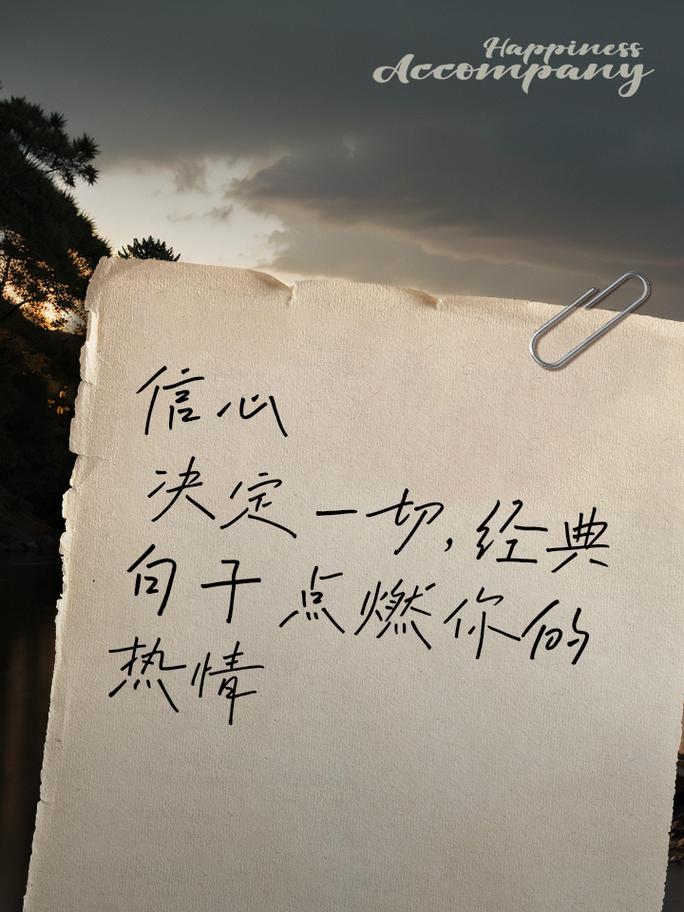 Happiness
Accompany
信心
决定一切,经典
句子点燃你的
热情